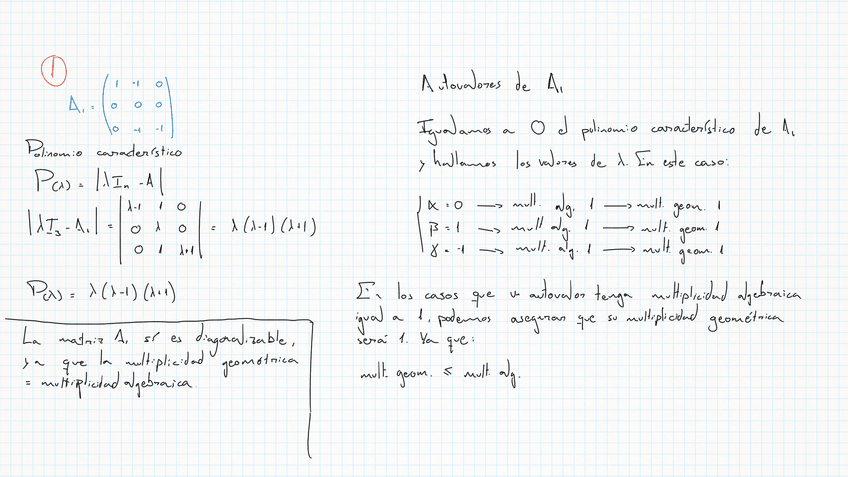 1
A₁ = ( 1 -1 0
0 0 0
0 -1 -1 )
Polinomio característico
P(λ) = |λIₙ - A|
|λI₃ - A₁| = | λ-1 1 0
0 λ 0
0 1 λ+1 | = λ(λ-1)(λ+1)
P(λ) = λ(λ-1)(λ+1)
La matriz A₁ sí es diagonalizable,
ya que la multiplicidad geométrica
= multiplicidad algebraica.
Autovalores de A₁
Igualamos a 0 el polinomio característico de A₁
y hallamos los valores de λ. En este caso:
α = 0 → mult. alg. 1 → mult. geom. 1
β = 1 → mult alg. 1 → mult. geom. 1
γ = -1 → mult. alg. 1 → mult. geom. 1
En los casos que un autovalor tenga multiplicidad algebraica
igual a 1, podemos asegurar que su multiplicidad geométrica
será 1. Ya que:
mult. geom. ≤ mult. alg.